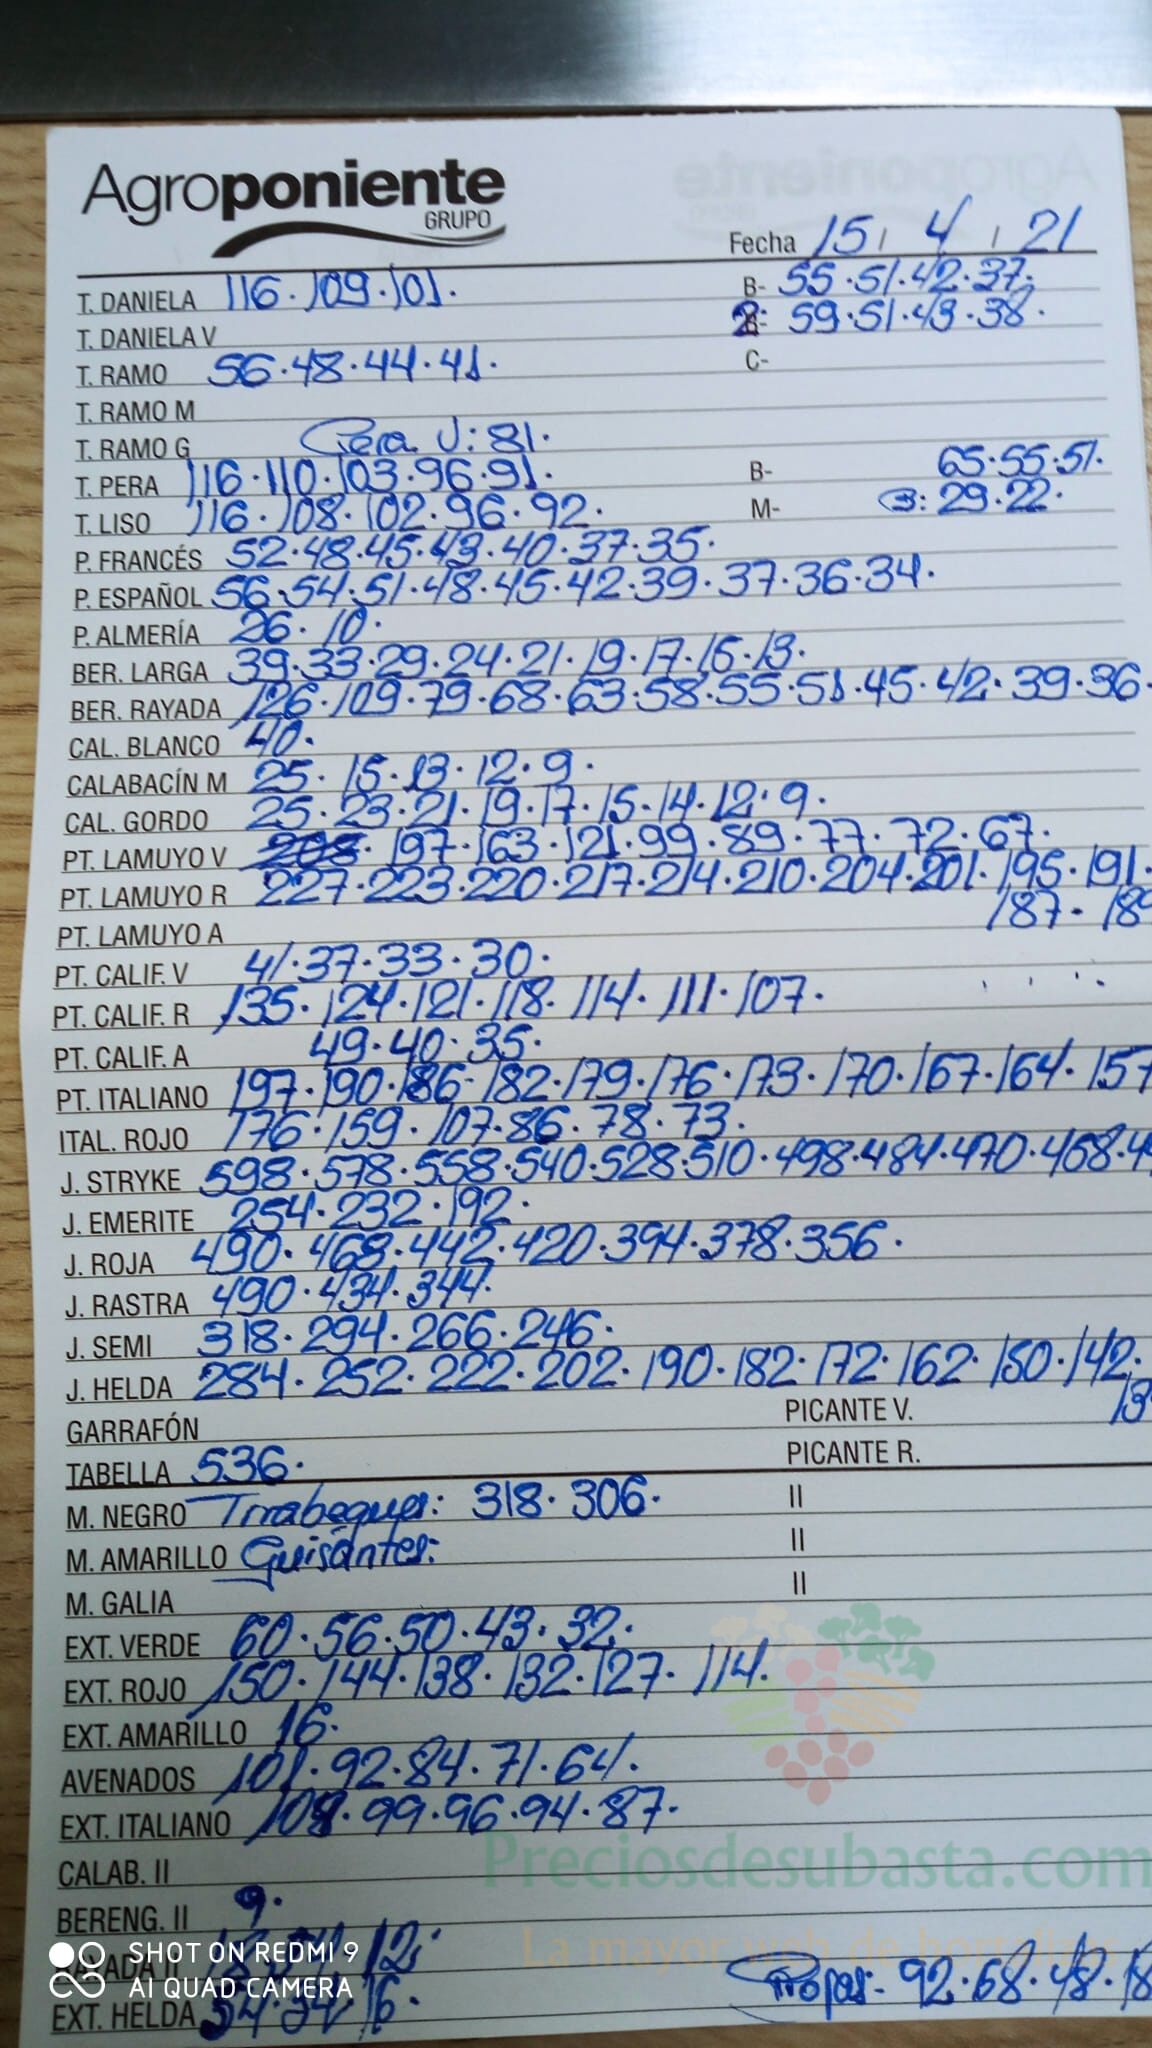 Agroponiente
GRUPO
Fecha 15 / 4 / 21
T. DANIELA 116·109·101· B- 55·51·42·37·
T. DANIELA V 2: 59·51·43·38·
T. RAMO 56·48·44·41· C-
T. RAMO M
T. RAMO G Pera V: 81·
T. PERA 116·110·103·96·91· B- 65·55·51·
T. LISO 116·108·102·96·92· M- 3: 29·22·
P. FRANCÉS 52·48·45·43·40·37·35·
P. ESPAÑOL 56·54·51·48·45·42·39·37·36·34·
P. ALMERÍA 26·10·
BER. LARGA 39·33·29·24·21·19·17·15·13·
BER. RAYADA 126·109·79·68·63·58·55·51·45·42·39·36·
CAL. BLANCO 40·
CALABACÍN M 25·15·13·12·9·
CAL. GORDO 25·23·21·19·17·15·14·12·9·
PT. LAMUYO V 197·163·121·99·89·77·72·67·
PT. LAMUYO R 227·223·220·217·214·210·204·201·195·191·
PT. LAMUYO A 187·18
PT. CALIF. V 41·37·33·30·
PT. CALIF. R 135·124·121·118·114·111·107·
PT. CALIF. A 49·40·35·
PT. ITALIANO 197·190·186·182·179·176·173·170·167·164·157
ITAL. ROJO 176·159·107·86·78·73·
J. STRYKE 598·578·558·540·528·510·498·484·470·458·4
J. EMERITE 254·232·192·
J. ROJA 490·468·442·420·394·378·356·
J. RASTRA 490·434·344·
J. SEMI 318·294·266·246·
J. HELDA 284·252·222·202·190·182·172·162·150·142·
GARRAFÓN PICANTE V. 13
TABELLA 536· PICANTE R.
M. NEGRO Tirabeques: 318·306· II
M. AMARILLO Guisantes: II
M. GALIA II
EXT. VERDE 60·56·50·43·32·
EXT. ROJO 150·144·138·132·127·114·
EXT. AMARILLO 16·
AVENADOS 101·92·84·71·64·
EXT. ITALIANO 108·99·96·94·87·
Preciosdesubasta.com
CALAB. II
BERENG. II 9·
La mayor web de hortalizas
SHOT ON REDMI 9
12·
AI QUAD CAMERA
Rojas: 92·68·48·18
EXT. HELDA 54·34·16·